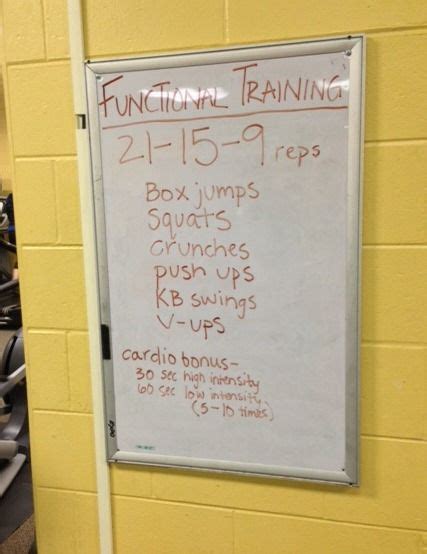 FUNCTIONAL TRAINING
21-15-9 reps
Box jumps
Squats
crunches
push ups
KB swings
V-ups
cardio bonus-
30 sec high intensity
60 sec low intensity
(5-10 times)